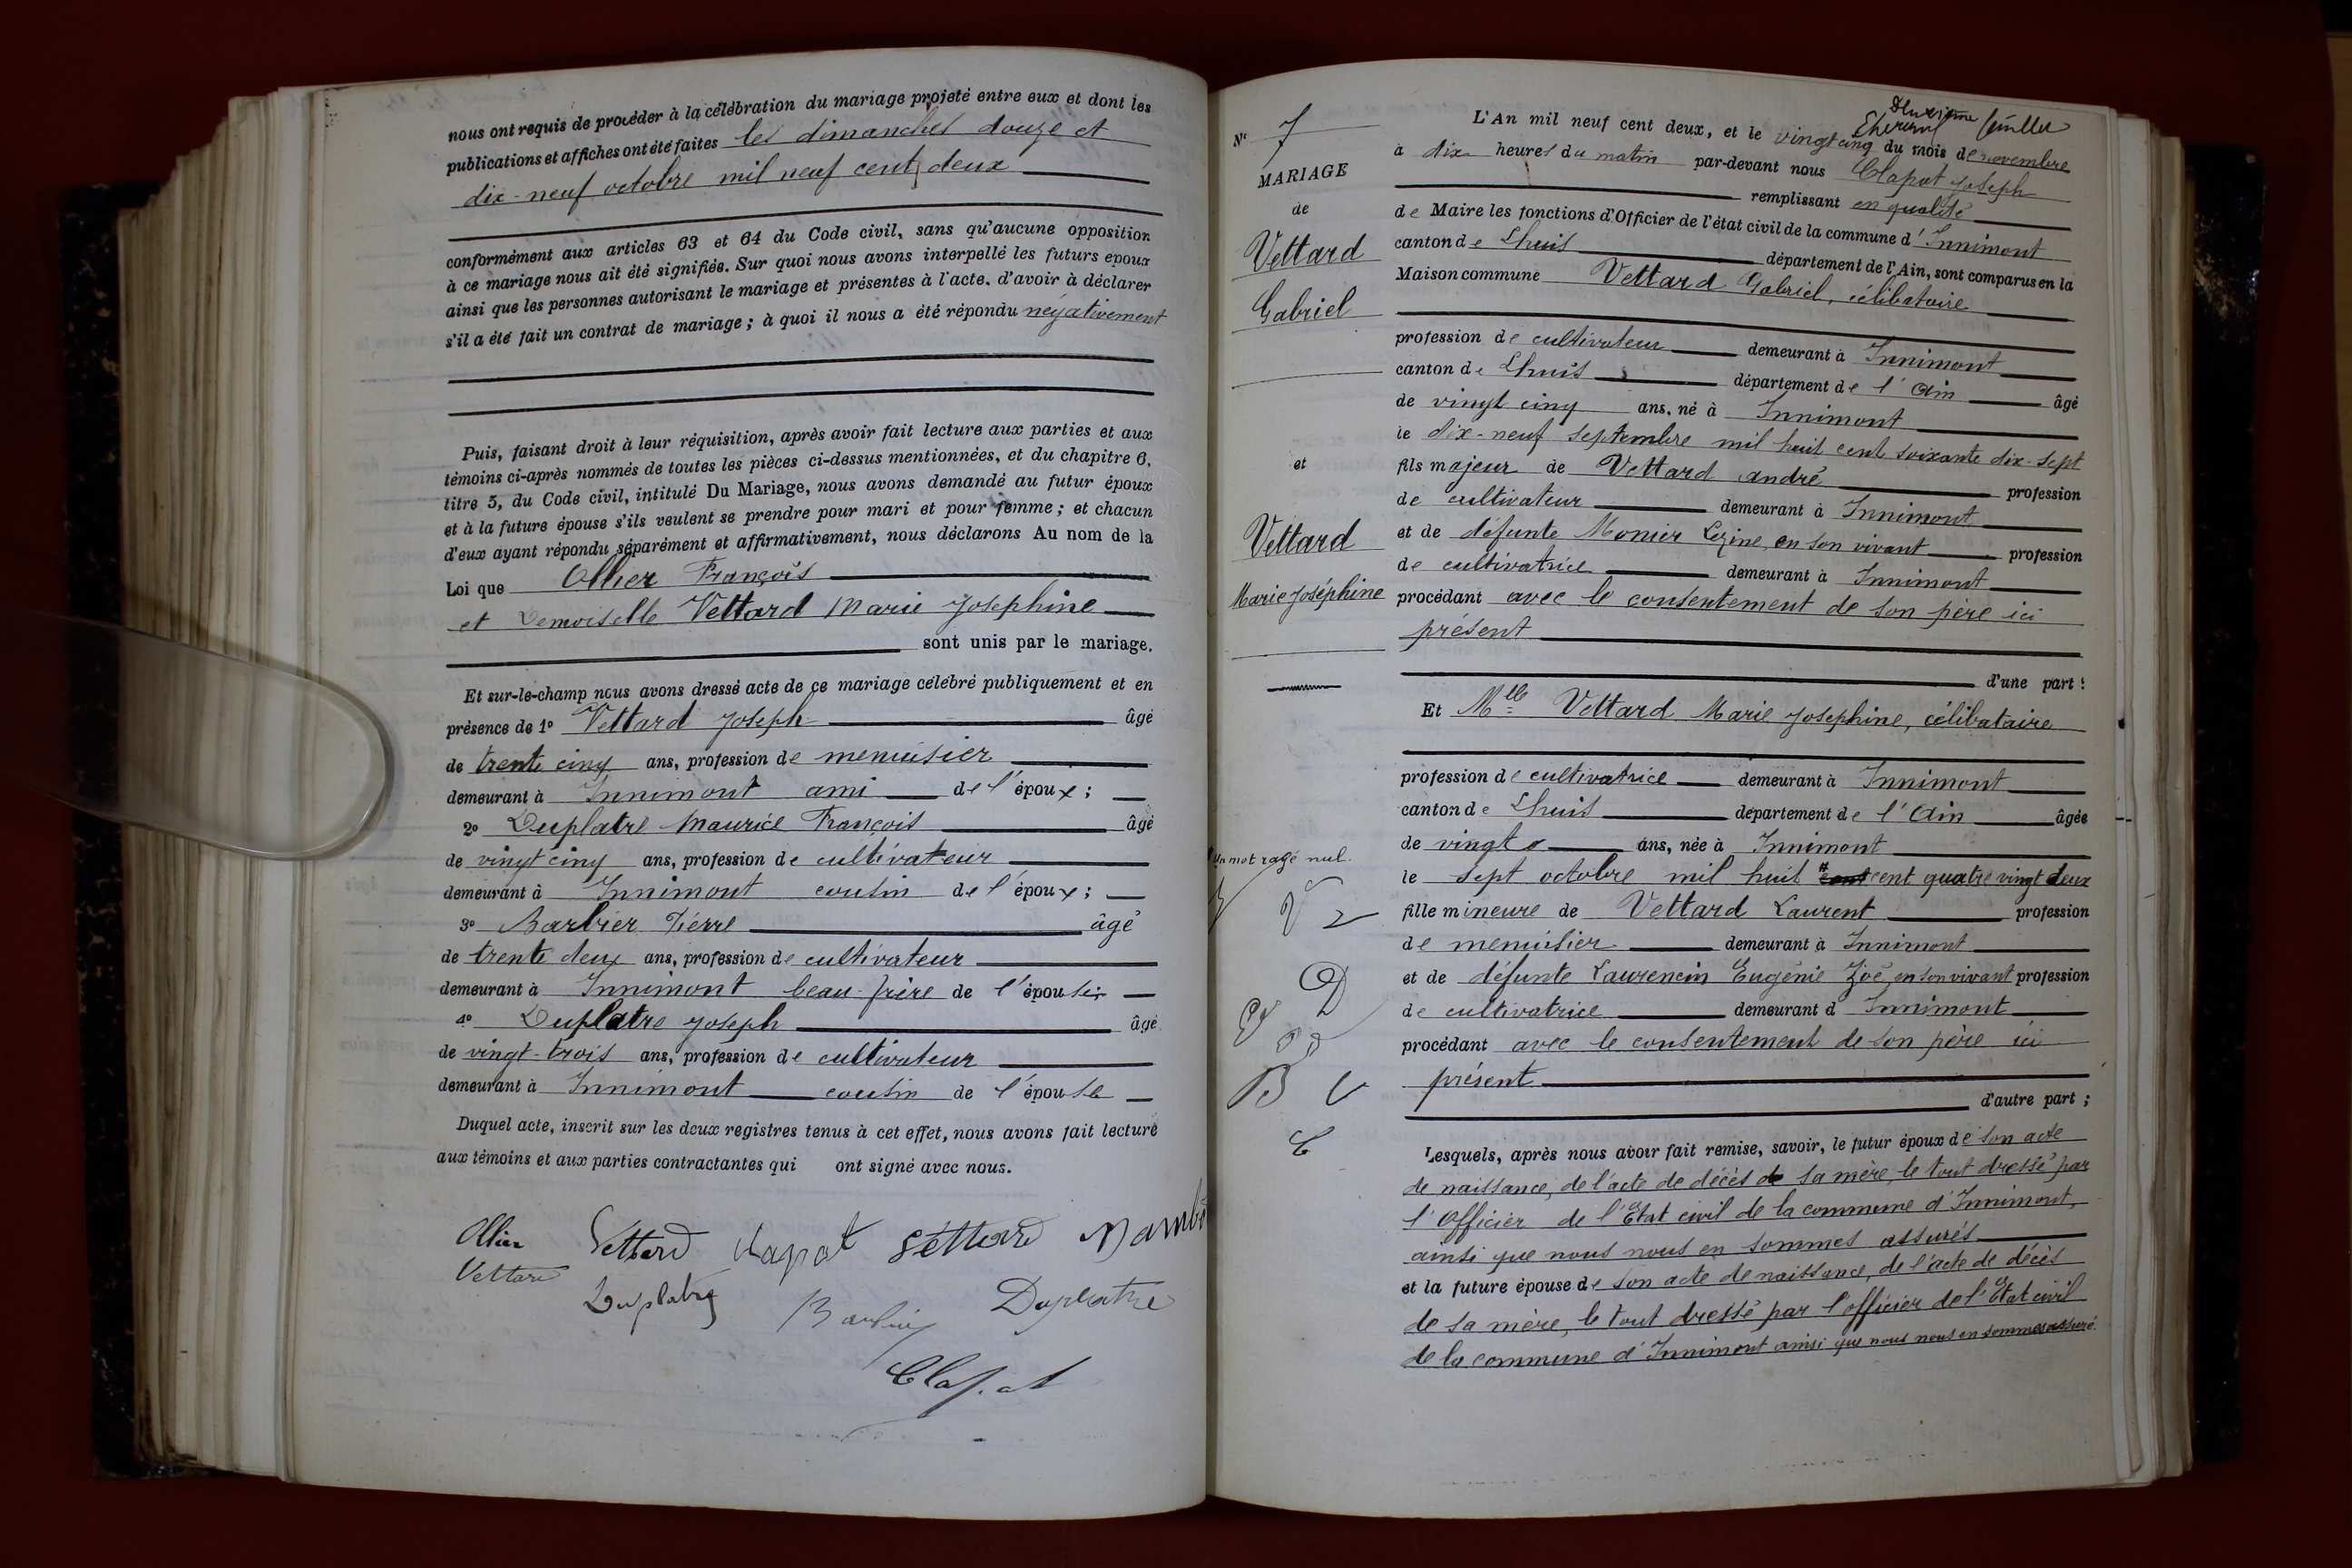 nous ont requis de procéder à la célébration du mariage projeté entre eux et dont les
publications et affiches ont été faites les dimanches douze et
dix-neuf octobre mil neuf cent deux
conformément aux articles 63 et 64 du Code civil, sans qu'aucune opposition
à ce mariage nous ait été signifiée. Sur quoi nous avons interpellé les futurs epoux
ainsi que les personnes autorisant le mariage et présentes à l'acte. d'avoir à déclarer
s'il a été fait un contrat de mariage; à quoi il nous a été répondu négativement
Puis, faisant droit à leur réquisition, après avoir fait lecture aux parties et aux
témoins ci-après nommés de toutes les pièces ci-dessus mentionnées, et du chapitre 6,
titre 5, du Code civil, intitulé Du Mariage, nous avons demandé au futur époux
et à la future épouse s'ils veulent se prendre pour mari et pour femme; et chacun
d'eux ayant répondu séparément et affirmativement, nous déclarons Au nom de la
Loi que Ollier François
et Demoiselle Vettard Marie Josephine
sont unis par le mariage.
Et sur-le-champ nous avons dressé acte de ce mariage célébré publiquement et en
présence de 1° Vettard Joseph âgé
de trente cinq ans, profession de menuisier
demeurant à Innimont ami de l'époux;
2° Duplatre Maurice François âgé
de vingt cinq ans, profession de cultivateur
demeurant à Innimont cousin de l'époux;
3° Barbier Pierre âgé
de trente deux ans, profession de cultivateur
demeurant à Innimont beau-frère de l'épouse
4° Duplatre Joseph âgé
de vingt-trois ans, profession de cultivateur
demeurant à Innimont cousin de l'épouse
Duquel acte, inscrit sur les deux registres tenus à cet effet, nous avons fait lecture
aux témoins et aux parties contractantes qui ont signé avec nous.
Ollier Vettard Clapot Vettard
Vettard Duplatre Barbier Duplatre
Clapot
N° 7
MARIAGE
de
Vettard
Gabriel
et
Vettard
Marie Joséphine
Un mot rayé nul.
Deuxième feuillet
L'An mil neuf cent deux, et le vingt cinq du mois de novembre
à dix heures du matin par-devant nous Clapot Joseph
remplissant en qualité
de Maire les fonctions d'Officier de l'état civil de la commune d'Innimont
canton de Lhuis département de l'Ain, sont comparus en la
Maison commune Vettard Gabriel, célibataire
profession de cultivateur demeurant à Innimont
canton de Lhuis département de l'Ain âgé
de vingt cinq ans, né à Innimont
le dix-neuf septembre mil huit cent soixante dix-sept
fils majeur de Vettard André profession
de cultivateur demeurant à Innimont
et de défunte Monier Lezine, en son vivant profession
de cultivatrice demeurant à Innimont
procédant avec le consentement de son père ici
présent
d'une part:
Et Mlle Vettard Marie Josephine, célibataire
profession de cultivatrice demeurant à Innimont
canton de Lhuis département de l'Ain âgée
de vingt ans, née à Innimont
le sept octobre mil huit cent cent quatre vingt deux
fille mineure de Vettard Laurent profession
de menuisier demeurant à Innimont
et de défunte Laurencin Eugénie Zoé, en son vivant profession
de cultivatrice demeurant à Innimont
procédant avec le consentement de son père ici
présent
d'autre part;
Lesquels, après nous avoir fait remise, savoir, le futur époux de son acte
de naissance, de l'acte de décès de sa mère, le tout dressé par
l'Officier de l'Etat civil de la commune d'Innimont,
ainsi que nous nous en sommes assurés
et la future épouse de son acte de naissance, de l'acte de décès
de sa mère, le tout dressé par l'officier de l'Etat civil
de la commune d'Innimont ainsi que nous nous en sommes assuré.